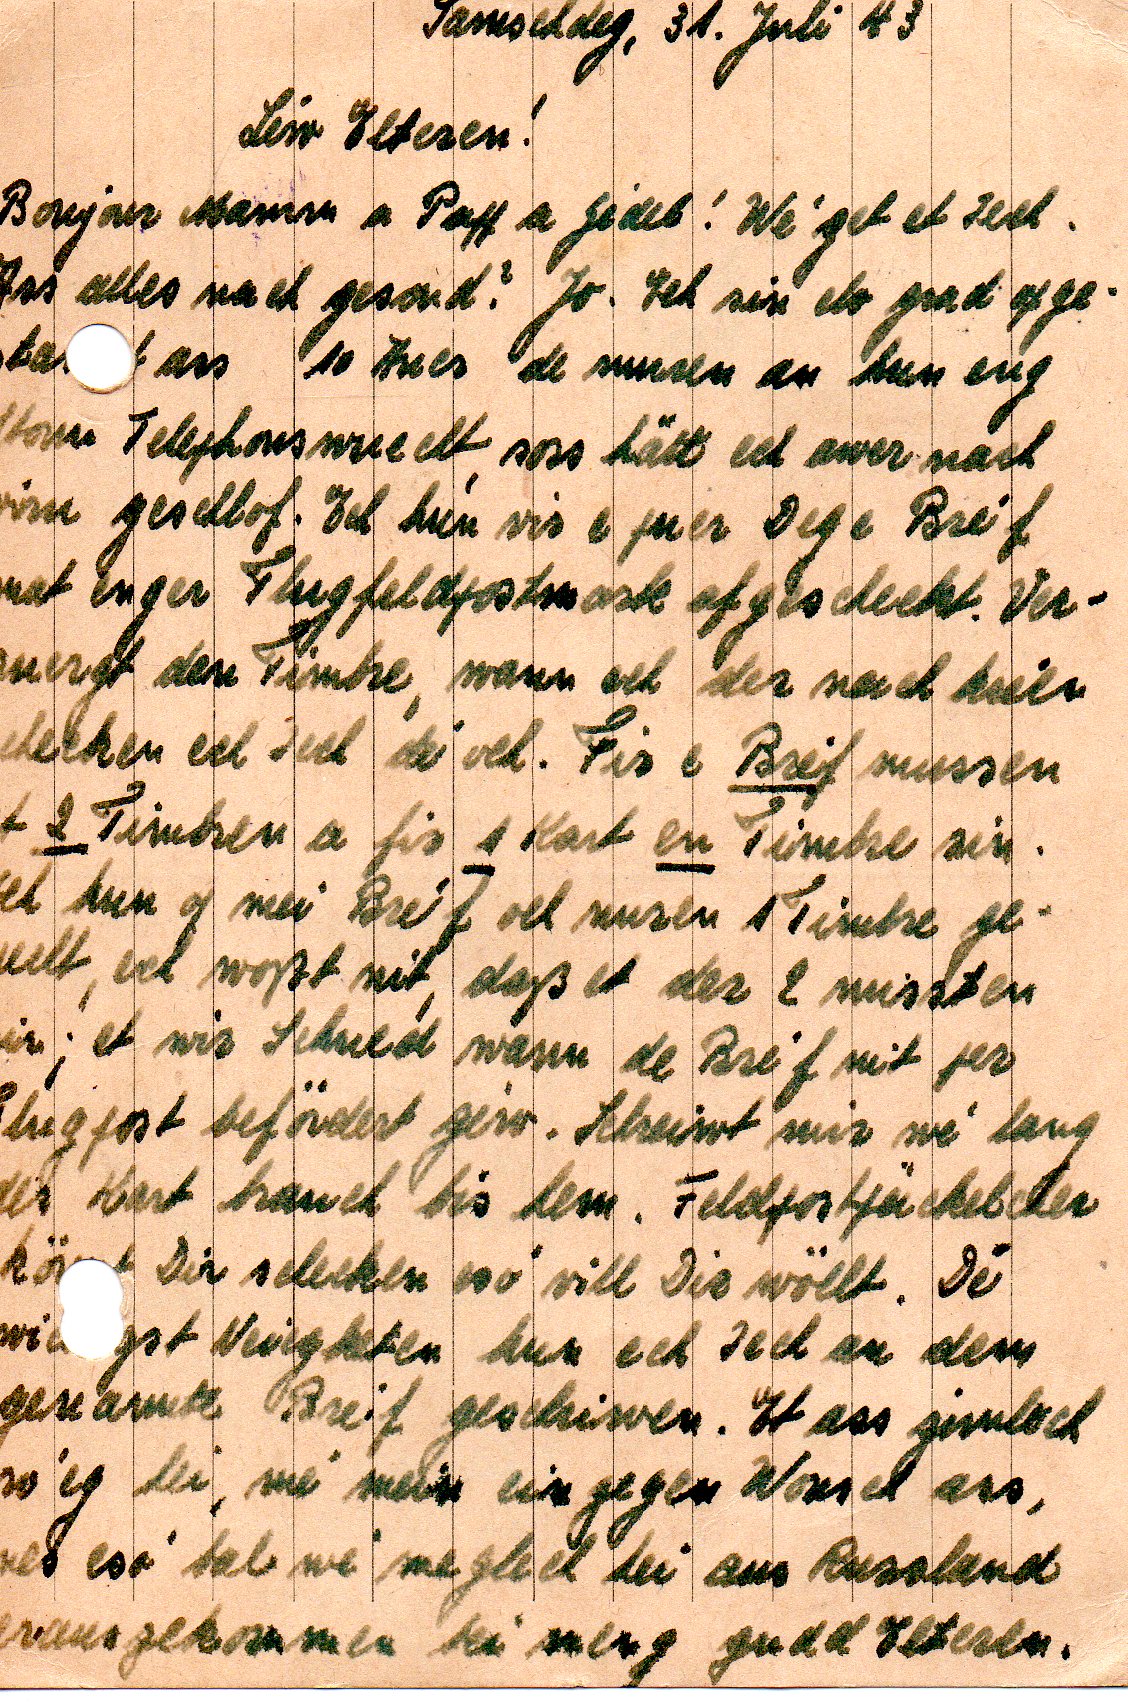 Samschdeg, 31. Juli 43
Léiw Elteren!
Bonjour Mamm a Papp a Jideb! Wé get et Iech.
Ass alles nach gesond? Jo. Ech sin elo grad opge-
ass 10 Auer de muren an hun eng
Telephonswuecht, soss hätt ech awer nach
geschlof. Ech hun vir e puer Dege Bréif
mat enger Flugfeldpostmark ofgescheckt. Ver-
wuergt den Timbre, wann ech der nach kréien
schecken ech Iech déi och. Fir e Bréif mussen
et 2 Timbren a fir 1 Kart en Timbre sin.
Ech hun op mei Bréif och nuren 1 Timbre ge-
pecht, ech woßt nit, daß et der 2 missten
sin; et wir Schued wann de Bréif nit per
Flugpost befördert géiw. Schreiwt mir wé lang
der Kart brauch bis hem. Feldpostpäckelcher
könnt Dir schecken esó vill Dir wöllt. Dé
wichtigst Neiigketen hun ech Iech an dem
genannte Bréif geschriwen. Et ass zimlech
hei, wé mein eenzegen Wonsch ass,
esó bal wé meglech hei aus Russland
erauszekommen bei meng gudd Elteren.